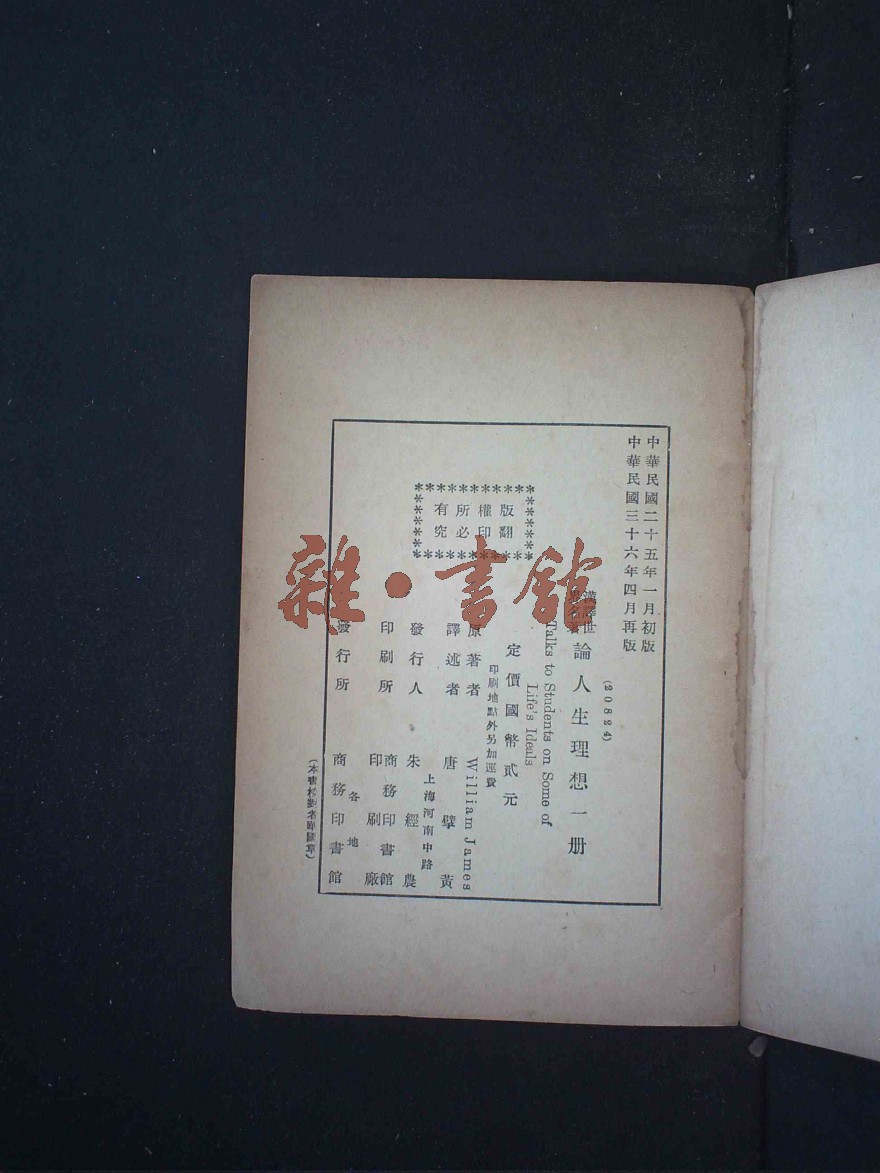 中華民國二十五年一月初版
中華民國三十六年四月再版
(20824)
漢譯世
界名著
論人生理想一册
Talks to Students on Some of
Life's Ideals
定價國幣貳元
印刷地點外另加運費
版權所有
翻印必究
原著者 William James
譯述者 唐擘黃
發行人 朱經農
上海河南中路
印刷所 商務印書館
印刷廠
發行所 商務印書館
各地
雜·書館